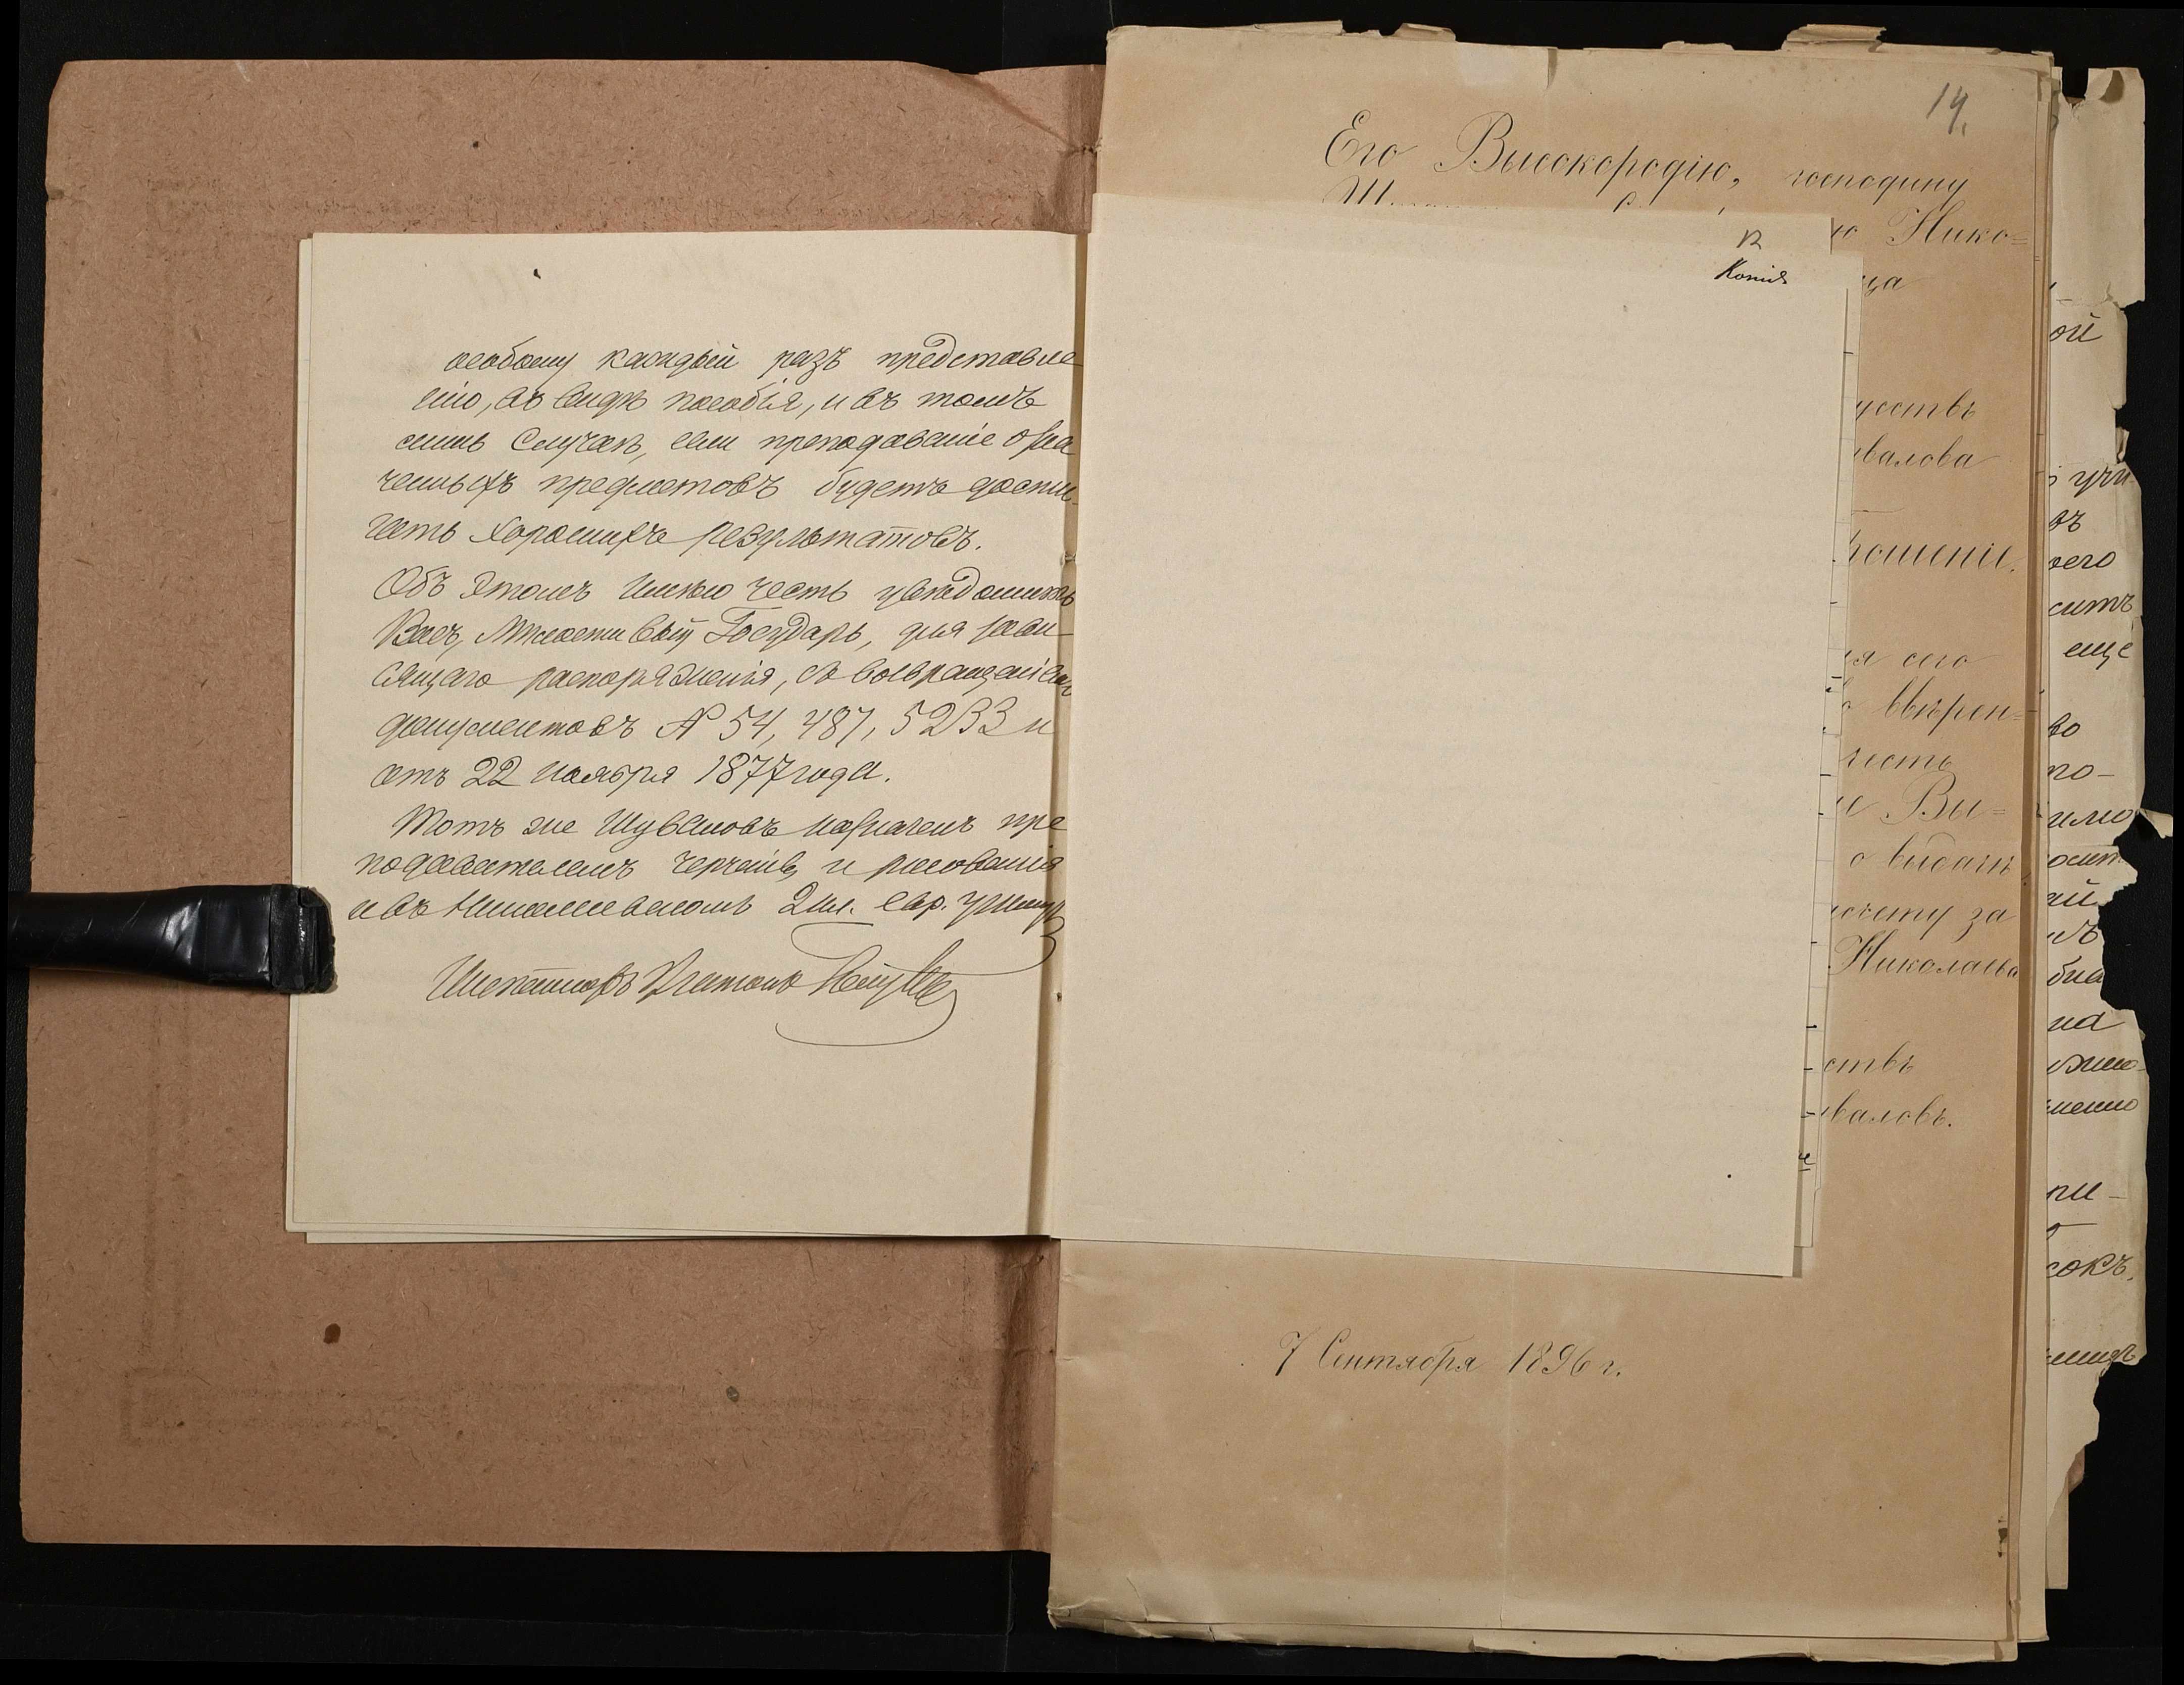 особому каждый разъ представле
нію, въ видѣ пособія, и въ томъ
лишь случаѣ, если преподаваніе озна
ченныхъ предметовъ будетъ дости-
гать хорошихъ результатовъ.
Объ этомъ имѣю честь увѣдомить
Васъ, Милостивый Государь, для зави-
сящаго распоряженія, съ возвращеніемъ
документовъ № 54, 487, 5233 и
отъ 22 ноября 1877 года.
Тотъ же Шуваловъ назначенъ пре
подавателемъ черченія и рисованія
и въ Николаевскомъ 2кл. евр. училищѣ
Инспекторъ
14.
Его Высокородію, господину
ю Нико=
ца
12
Копія
усствъ
валова
рошеніе.
ія сего
ввѣрен=
честь
е Вы=
о выдачѣ
расчету за
Николаева
ствъ
валовъ.
7 Сентября 1896 г.
ой
учи
въ
оего
ситъ
еще
во
по-
имо
осит
ай
на
пи-
сокъ.